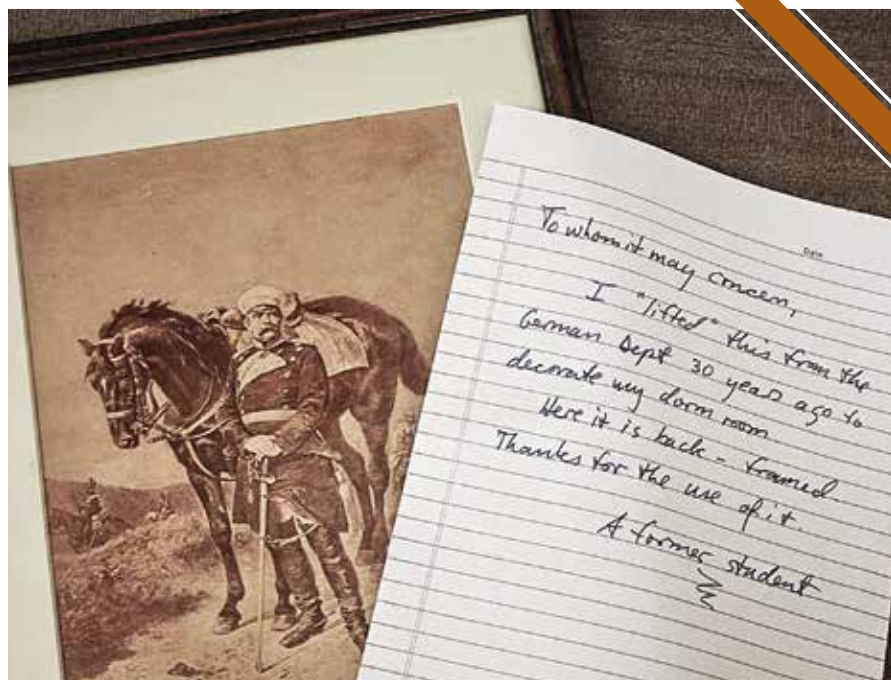 Date
To whom it may concern,
I "lifted" this from the
German Dept 30 years ago to
decorate my dorm room.
Here it is back - framed.
Thanks for the use of it.
A former student